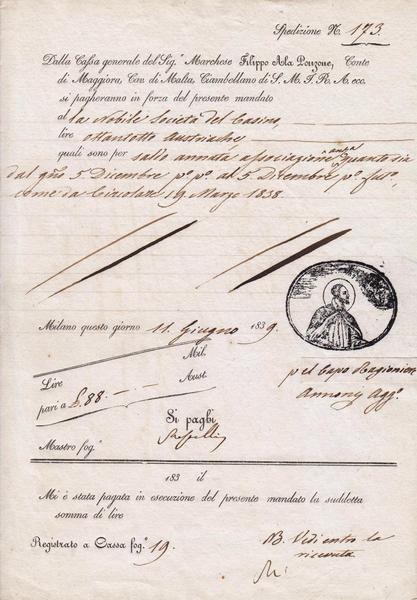 Spedizione N. 173.
Dalla Cassa generale del Sig.r Marchese Filippo Ala Ponzone, Conte
di Maggiora, Cav. di Malta, Ciambellano di S. M. I. R. A. ecc.
si pagheranno in forza del presente mandato
al la Nobile Società del Casino,
lire ottantotto Austriache
quali sono per saldo annata associazione quanto sia
dal 5 Dicembre p.° p.° al 5 Dicembre p.°
come da Circolare 19 Marzo 1838.
Milano questo giorno 11. Giugno 1839.
Mil.
Lire Aust.
pari a £.88 - -
pel Capo Ragioniere
Agg.°
Si paghi
Mastro fog.°
183 il
Mi è stata pagata in esecuzione del presente mandato la suddetta
somma di lire
Registrato a Cassa fog.° 19.
NB. Vedi entro la
ricevuta